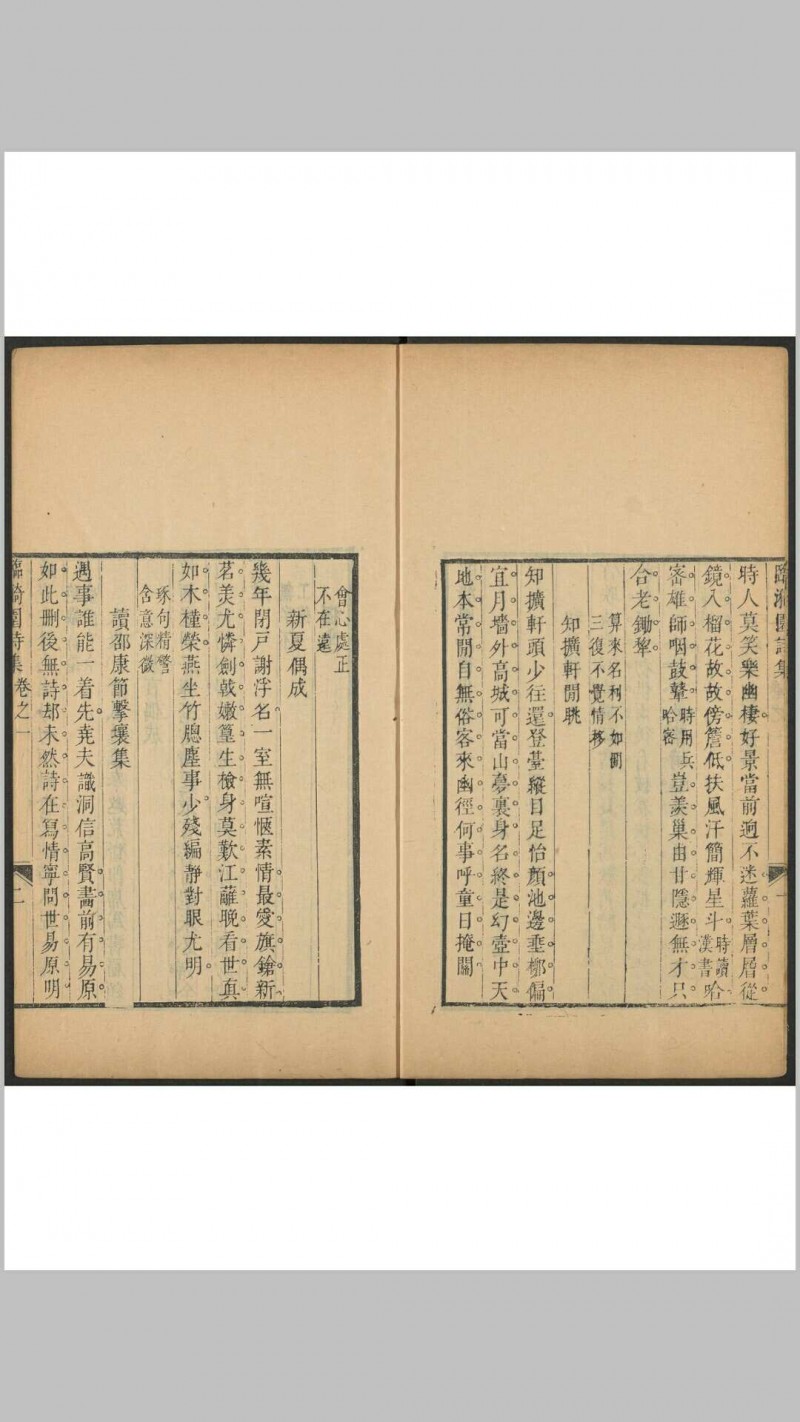 臨漪園詩集
時人莫笑樂幽棲好景當前逈不迷蘿葉層層從
鏡入榴花故故傍簷低扶風汗簡輝星斗時讀漢書哈
密雄師咽鼓鼙時用兵哈密豈羨巢由甘隱遯無才只
合老鋤犂
算來名利不如閒
三復不覺情移
知擴軒閒眺
知擴軒頭少往還登臺縱目足怡顏池邊垂柳偏
宜月墻外高城可當山夢裏身名終是幻壺中天
地本常閒自無俗客來幽徑何事呼童日掩關
會心處正
不在遠
新夏偶成
幾年閉戸謝浮名一室無喧愜素情最愛旗鎗新
茗美尤憐劍戟嫩篁生檢身莫歎江蘺晚看世眞
如木槿榮燕坐竹牕塵事少殘編靜對眼尤明
琢句精警
含意深微
讀邵康節擊壤集
遇事誰能一着先堯夫識洞信高賢畵前有易原
如此刪後無詩却未然詩在寫情寧問世易原明
臨漪園詩集卷之一 二